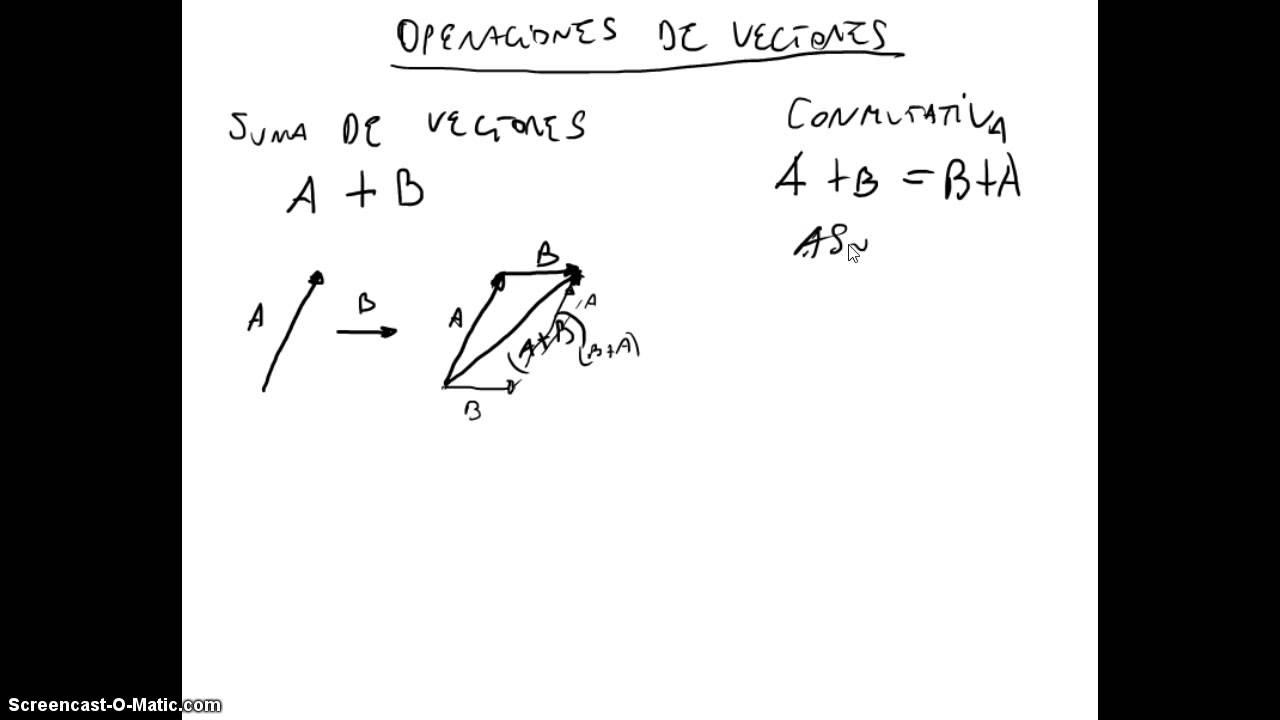 OPERACIONES DE VECTORES
SUMA DE VECTORES
A + B
CONMUTATIVA
A + B = B + A
AS
A
B
B
A
A
(A+B)
(B+A)
B
Screencast-O-Matic.com